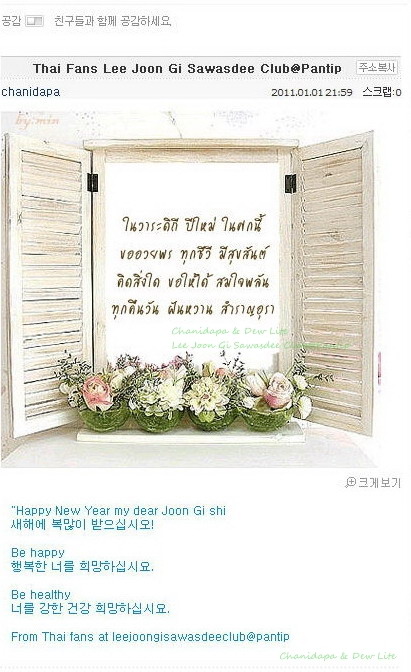 공감 친구들과 함께 공감하세요.
Thai Fans Lee Joon Gi Sawasdee Club@Pantip 주소복사
chanidapa 2011.01.01 21:59 스크랩:0
by:min
ในวาระดิถี ปีใหม่ ในศกนี้
ขออวยพร ทุกชีวี มีสุขสันต์
คิดสิ่งใด ขอให้ได้ สมใจพลัน
ทุกคืนวัน ฝันหวาน สำราญอุรา
Chanidapa & Dew Lite
Lee Joon Gi Sawasdee
크게보기
"Happy New Year my dear Joon Gi shi
새해에 복많이 받으십시오!
Be happy
행복한 너를 희망하십시요.
Be healthy
너를 강한 건강 희망하십시요.
From Thai fans at leejoongisawasdeeclub@pantip
Chanidapa & Dew Lite